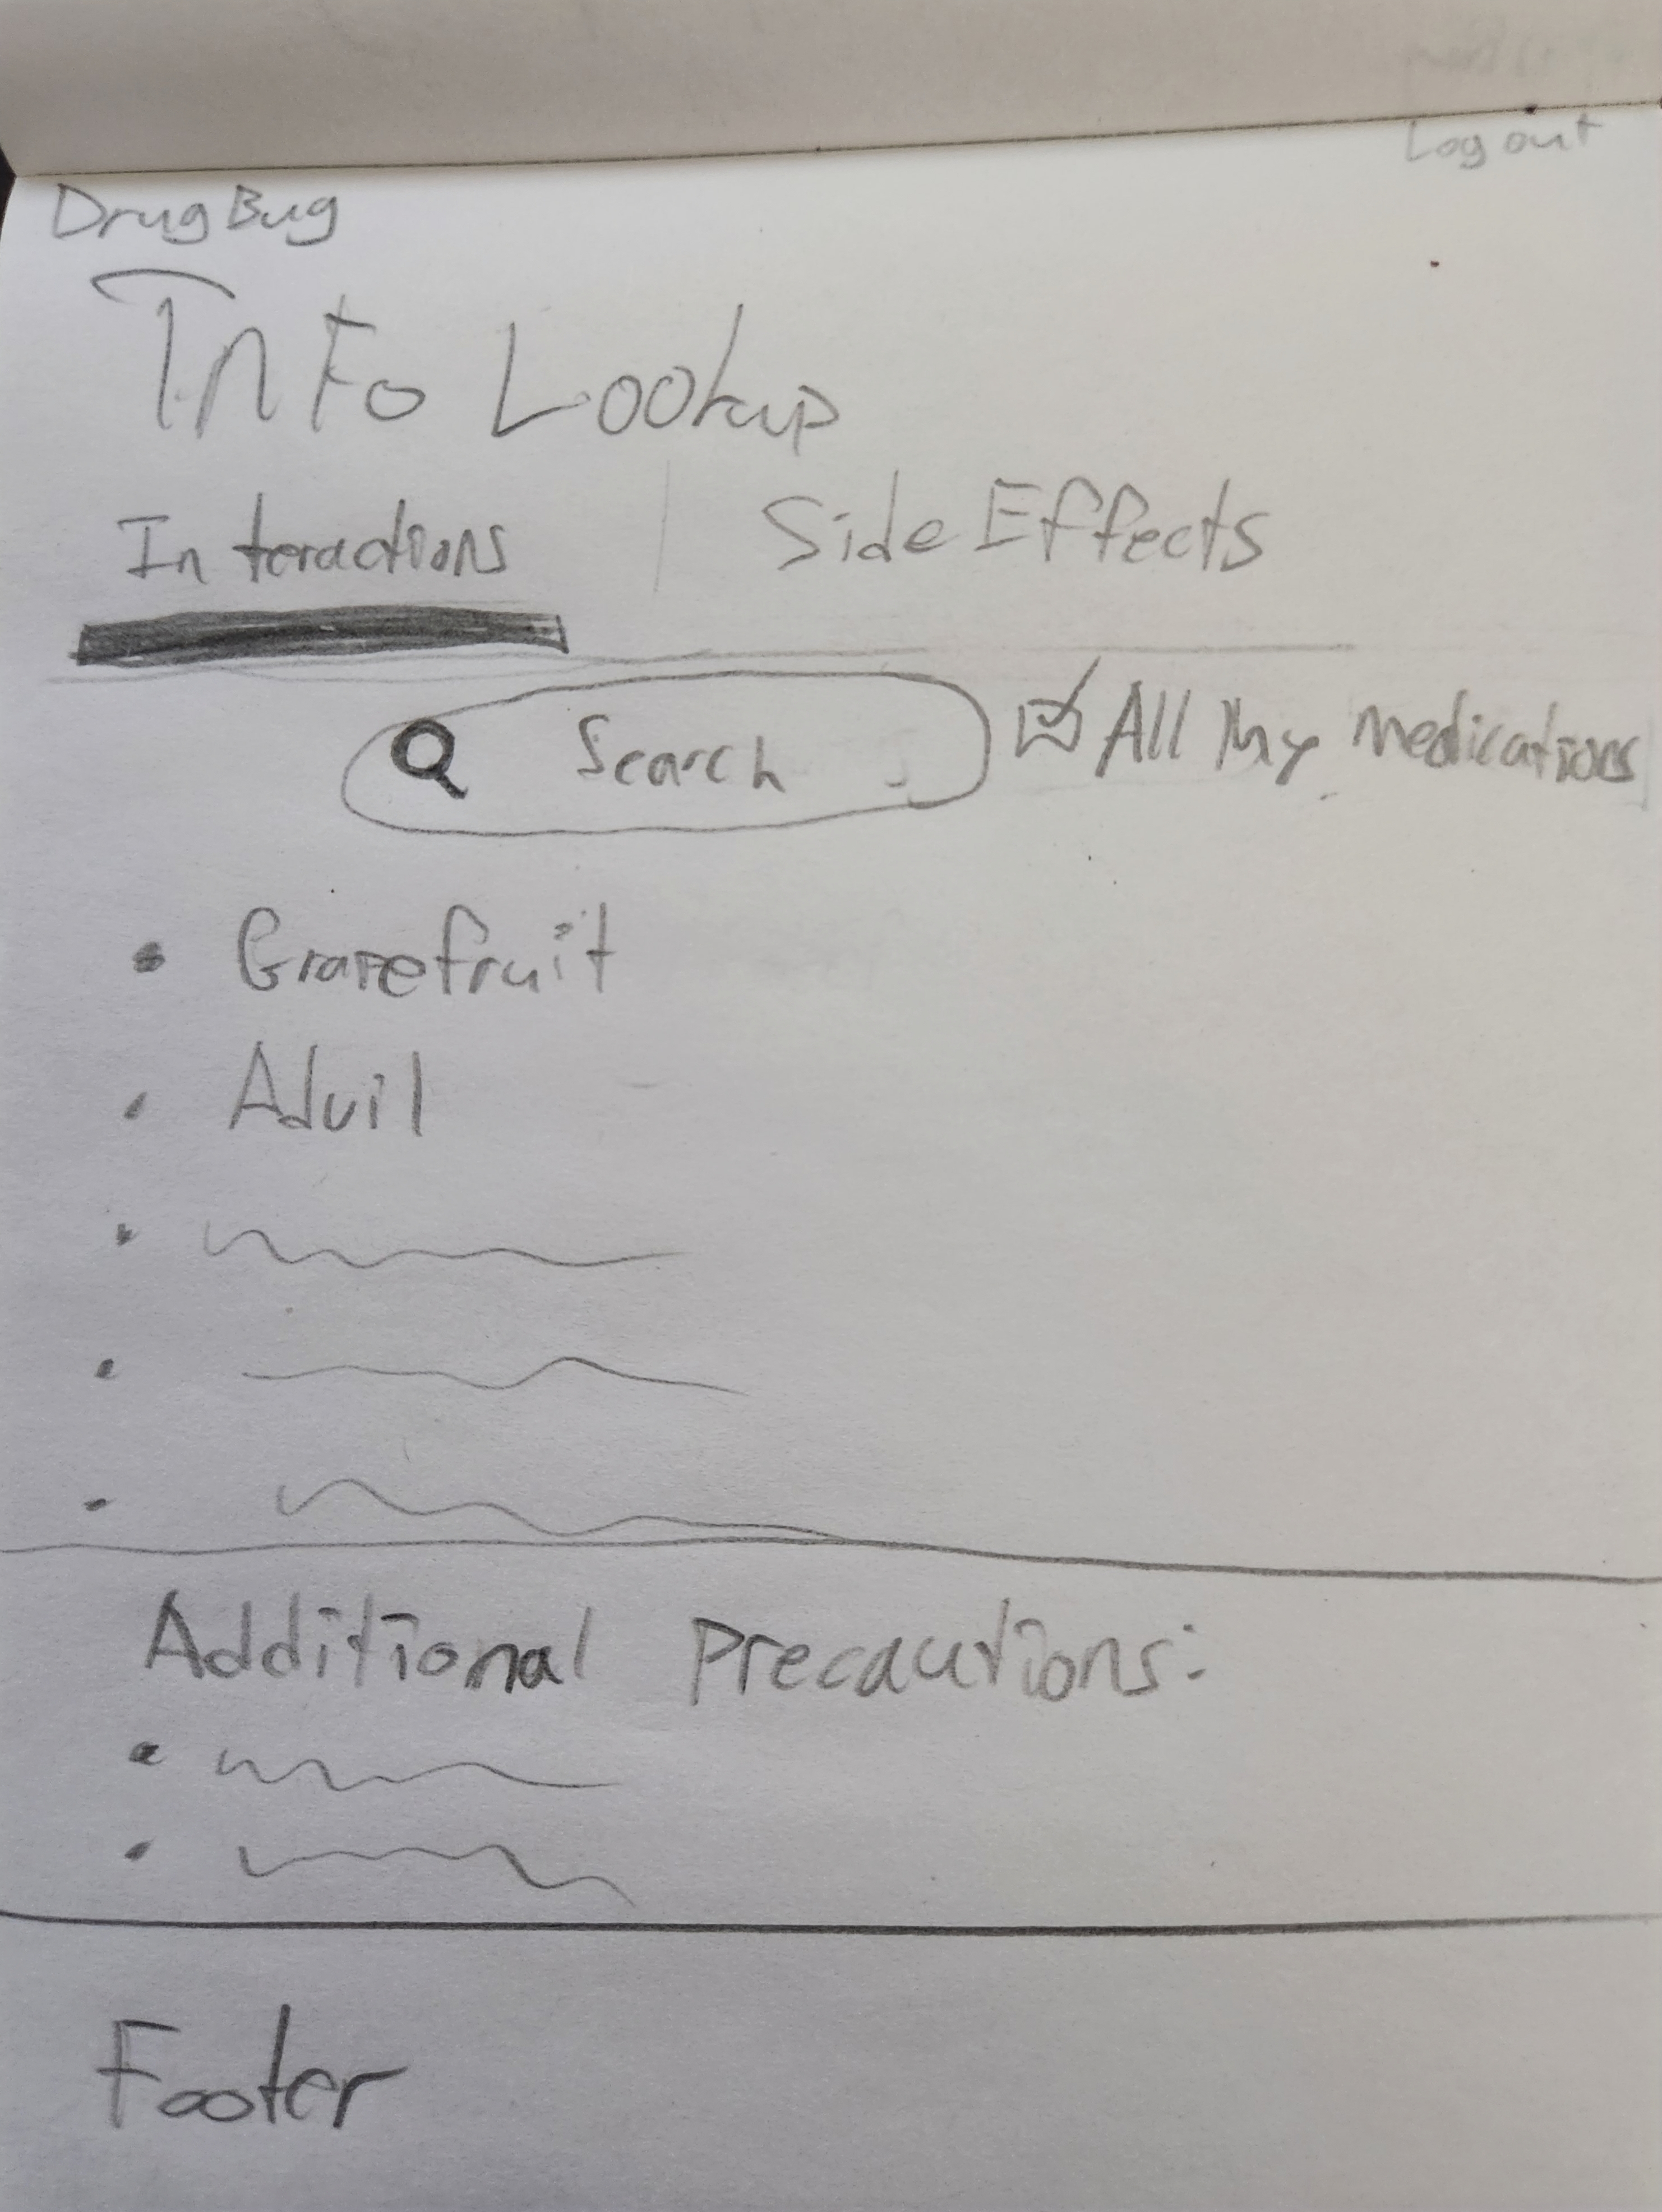 Log out
DrugBug
Info Lookup
Interactions | Side Effects
Search All My Medications
• Grapefruit
• Advil
Additional Precautions:
Footer